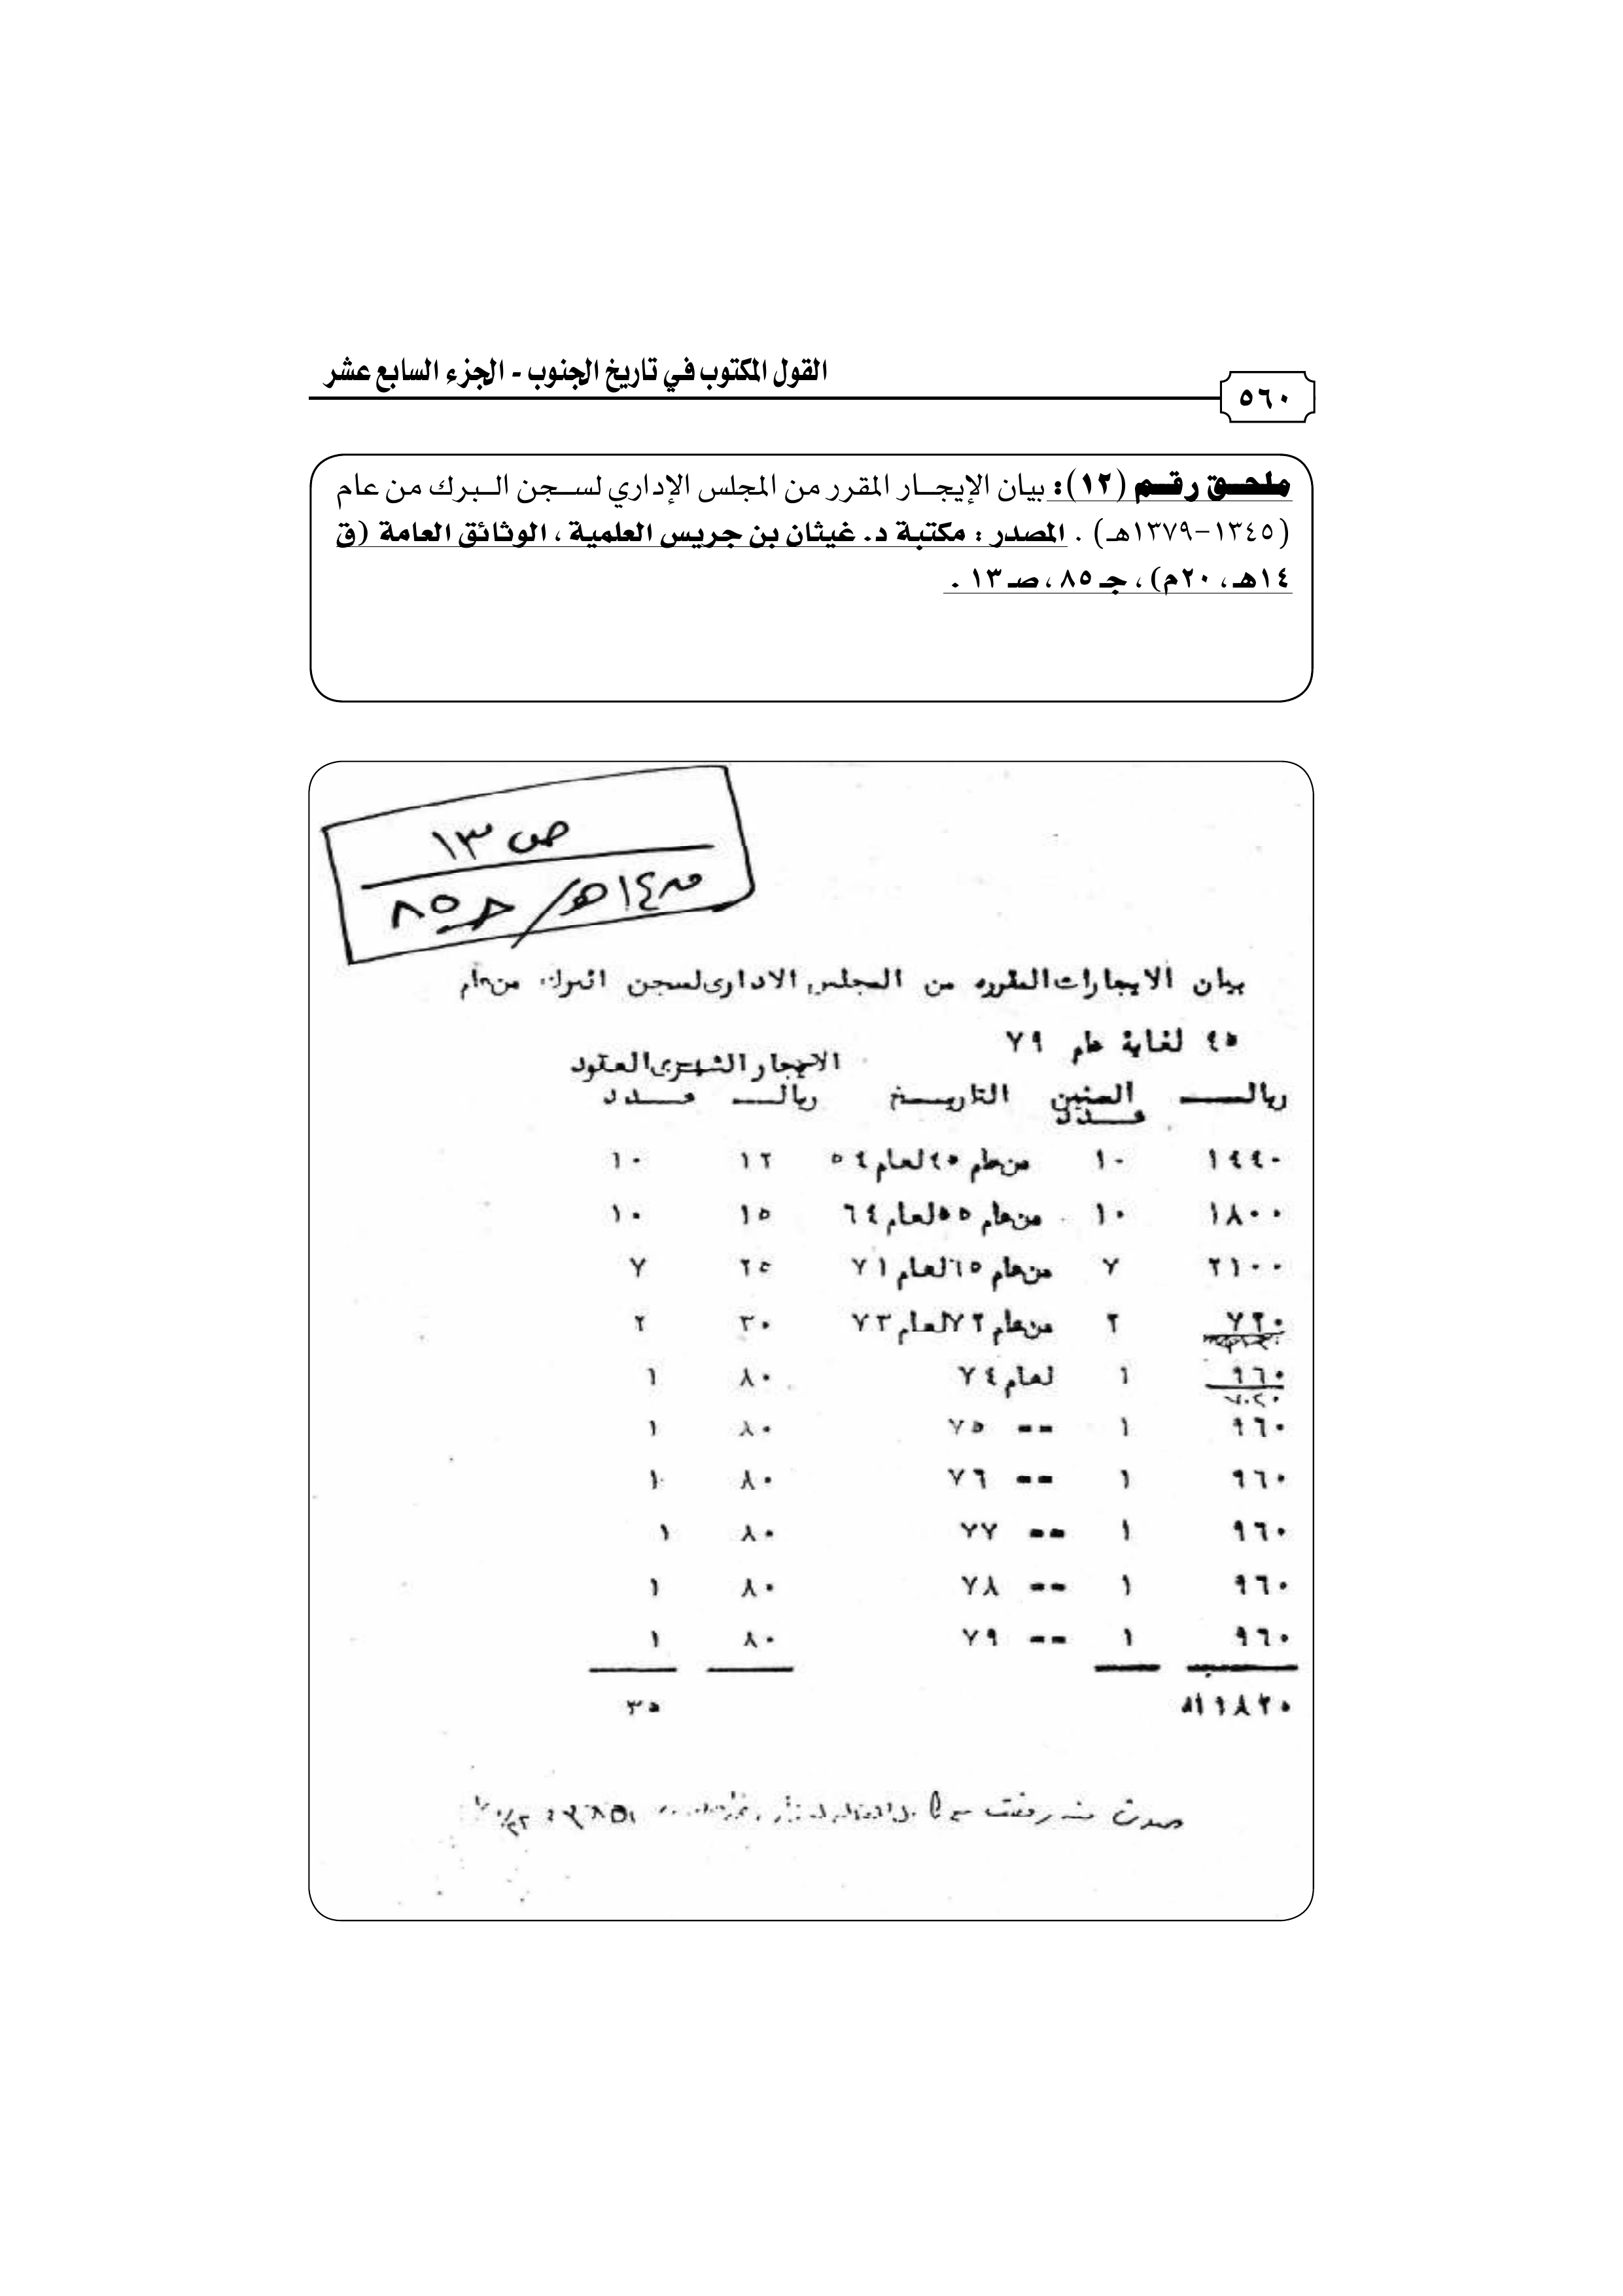 القول المكتوب في تاريخ الجنوب - الجزء السابع عشر
٥٦٠
ملحق رقم (١٢): بيان الإيجار المقرر من المجلس الإداري لسجن البرك من عام
(١٣٤٥-١٣٧٩هـ) . المصدر : مكتبة د. غيثان بن جريس العلمية ، الوثائق العامة (ق
١٤هـ، ٢٠م) ، جـ ٨٥ ، صـ ١٣ .
ص ١٣
ق ١٤هـ/ جـ ٨٥
بيان الايجارات المقرره من المجلس الادارى لسجن البرك من عام
٤٥ لغاية عام ٧٩
الايجار الشهرى العقود
ريالـــ السنين التاريـخ ريالـــ عـــدد
عـــدد
١٤٤٠ ١٠ من عام ٤٥ لعام ٥٤ ١٢ ١٠
١٨٠٠ ١٠ من عام ٥٥ لعام ٦٤ ١٥ ١٠
٢١٠٠ ٧ من عام ٦٥ لعام ٧١ ٢٥ ٧
٧٢٠ ٢ من عام ٧٢ لعام ٧٣ ٣٠ ٢
٩٦٠ ١ لعام ٧٤ ٨٠ ١
٧٠٢٠
٩٦٠ ١ -- ٧٥ ٨٠ ١
٩٦٠ ١ -- ٧٦ ٨٠ ١
٩٦٠ ١ -- ٧٧ ٨٠ ١
٩٦٠ ١ -- ٧٨ ٨٠ ١
٩٦٠ ١ -- ٧٩ ٨٠ ١
٣٥